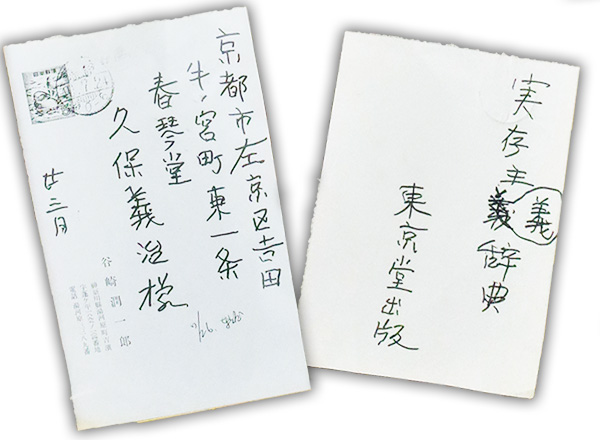 京都市左京区吉田
牛ノ宮町東一条
春琴堂
久保義治様
廿三日
谷崎潤一郎
7/26
実存主義辞典
義
東京堂出版